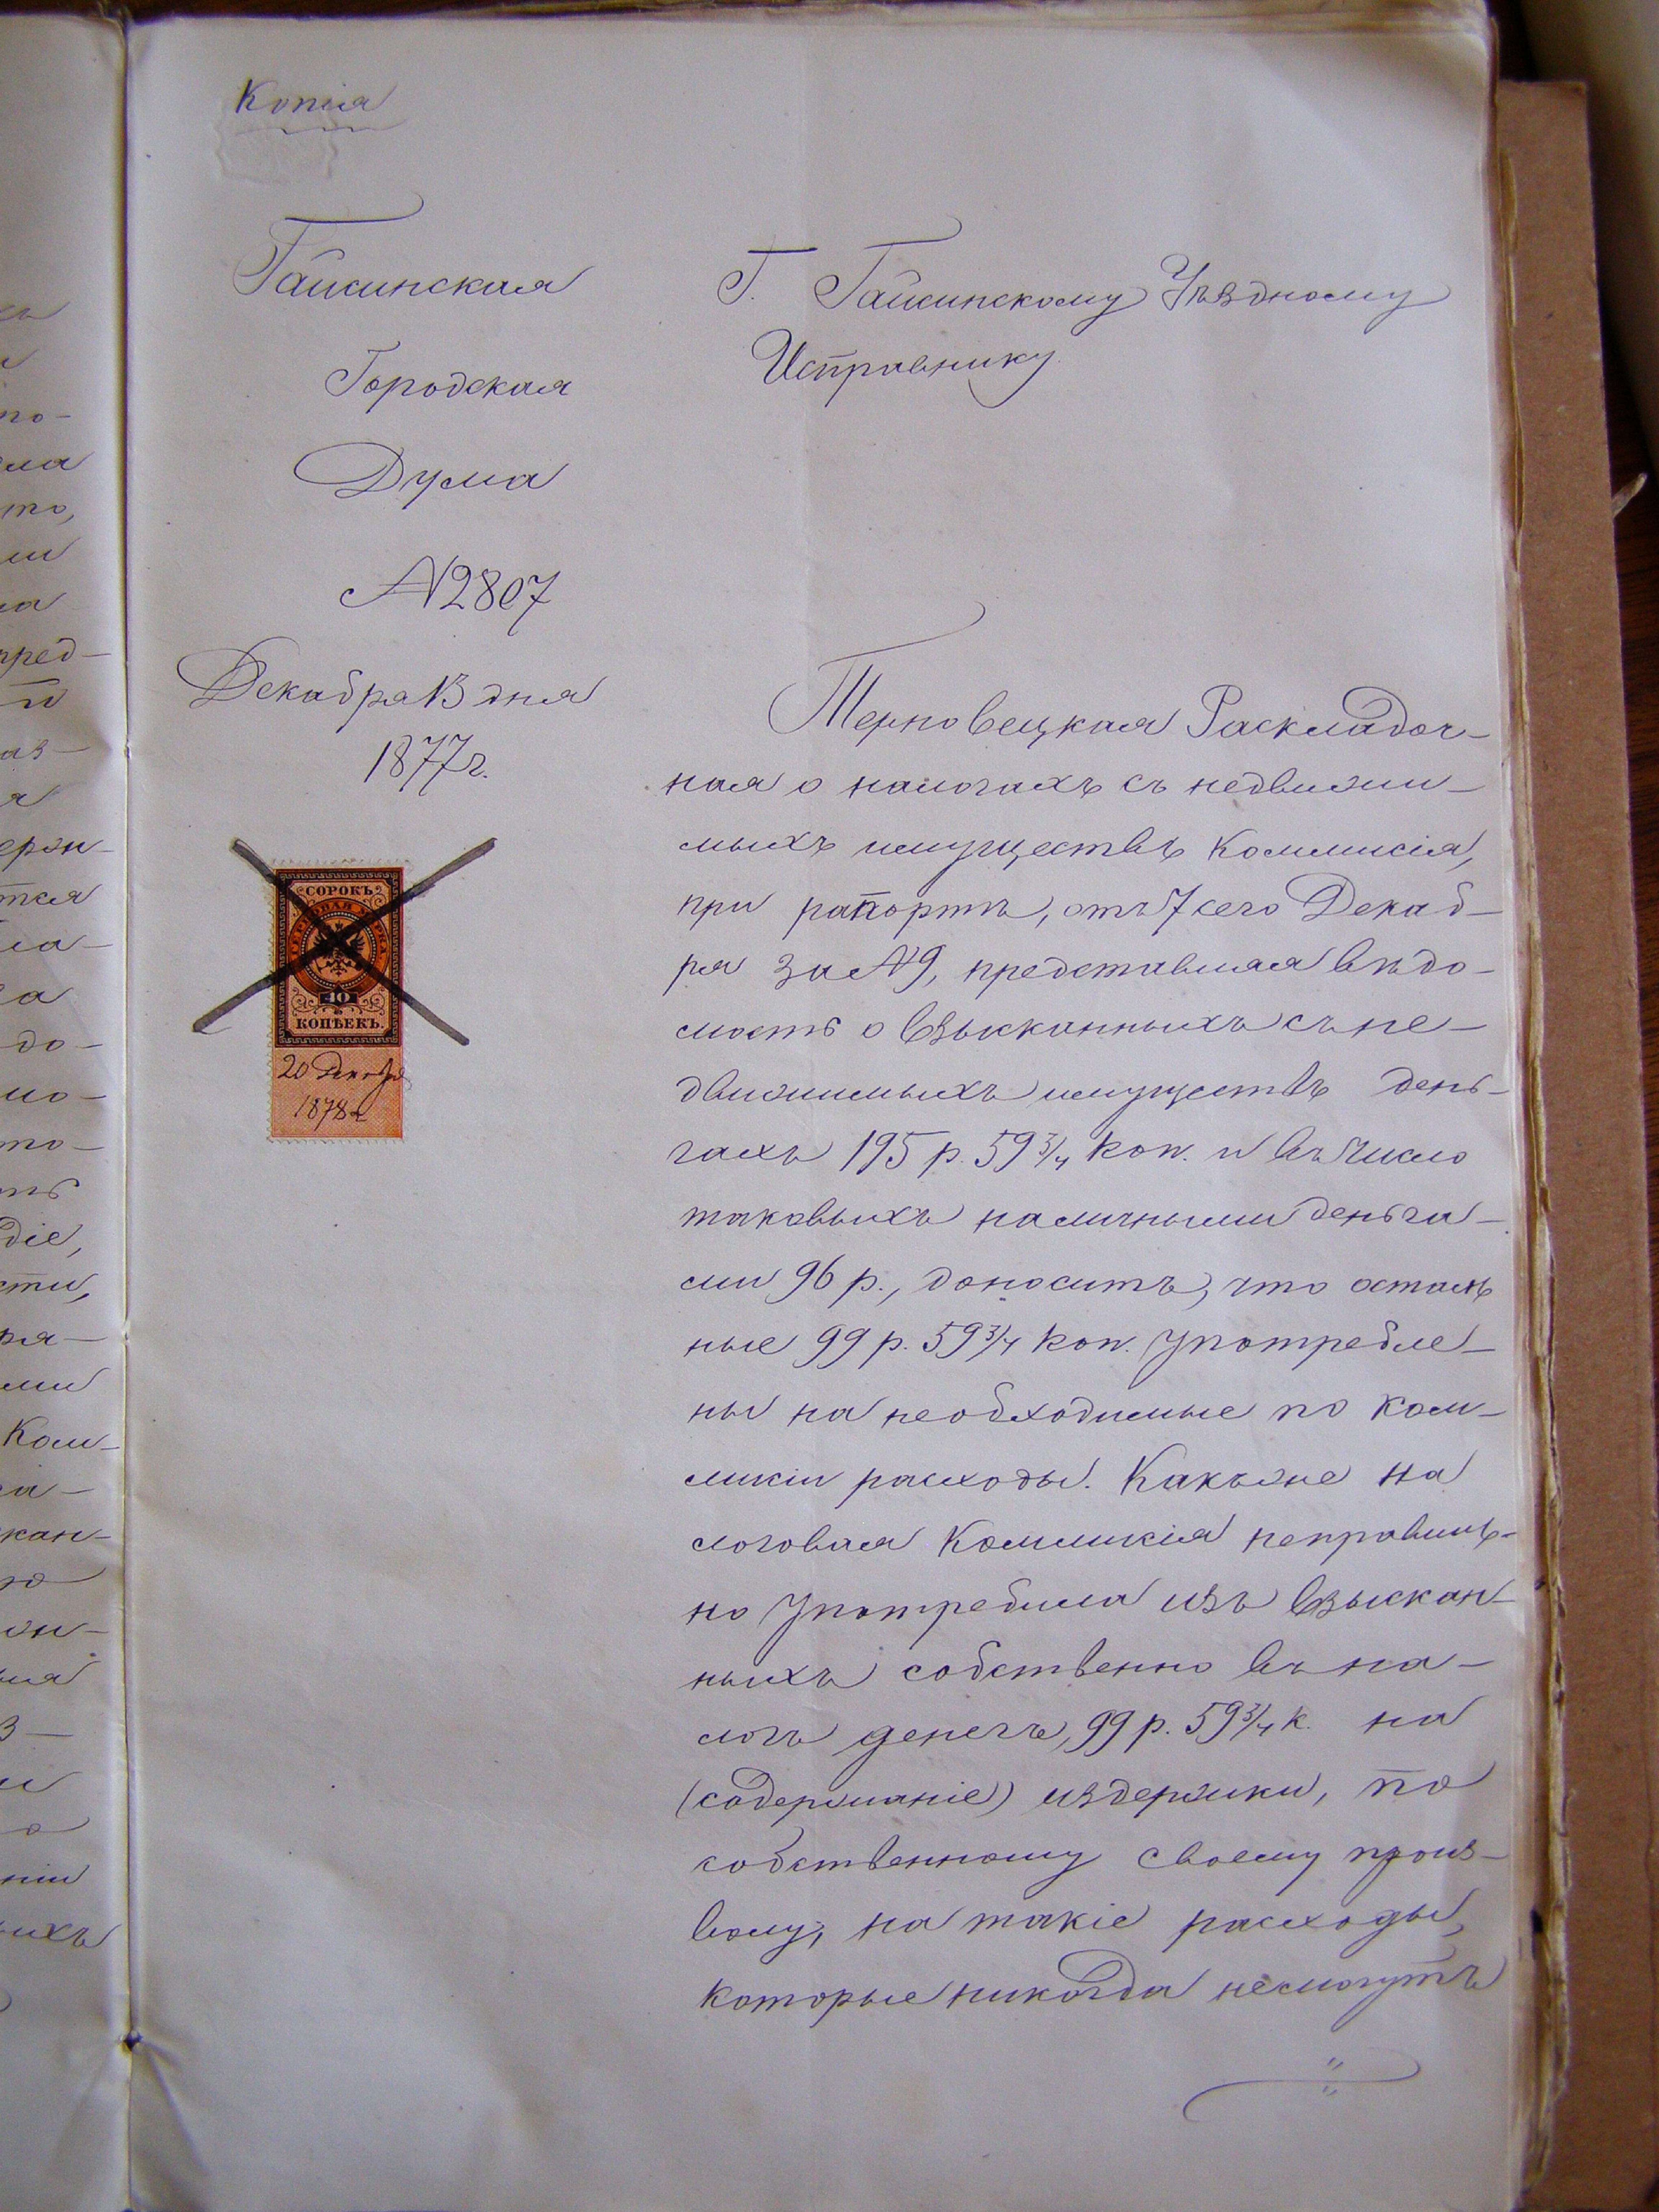 Копія
Гайсинская
Городская
Дума
№ 2807
Декабря 13 дня
1877 г.
СОРОКЪ
ГЕРБОВАЯ МАРКА
40
КОПѢЕКЪ.
20 Декабря
1878 г
Г. Гайсинскому Уѣздному
Исправнику
Терновецкая Раскладоч-
ная о налогахъ съ недвижи-
мыхъ имуществъ Коммисія,
при рапортѣ, отъ 7 сего Декаб-
ря за № 9, представляя вѣдо-
мость о взысканныхъ съ не-
движимыхъ имуществъ день-
гахъ 195 р. 59 3/4 коп. и въ число
таковыхъ наличными деньга-
ми 96 р., доноситъ, что осталь
ные 99 р. 59 3/4 коп. употребле-
ны на необходимые по ком-
мисіи расходы. Какъ же на
логовая Коммисія неправиль-
но употребила изъ взыскан-
ныхъ собственно въ на-
логъ денегъ, 99 р. 59 3/4 к. на
(содержаніе) издержки, по
собственному своему произ-
волу, на такіе расходы,
которые никогда несмогутъ